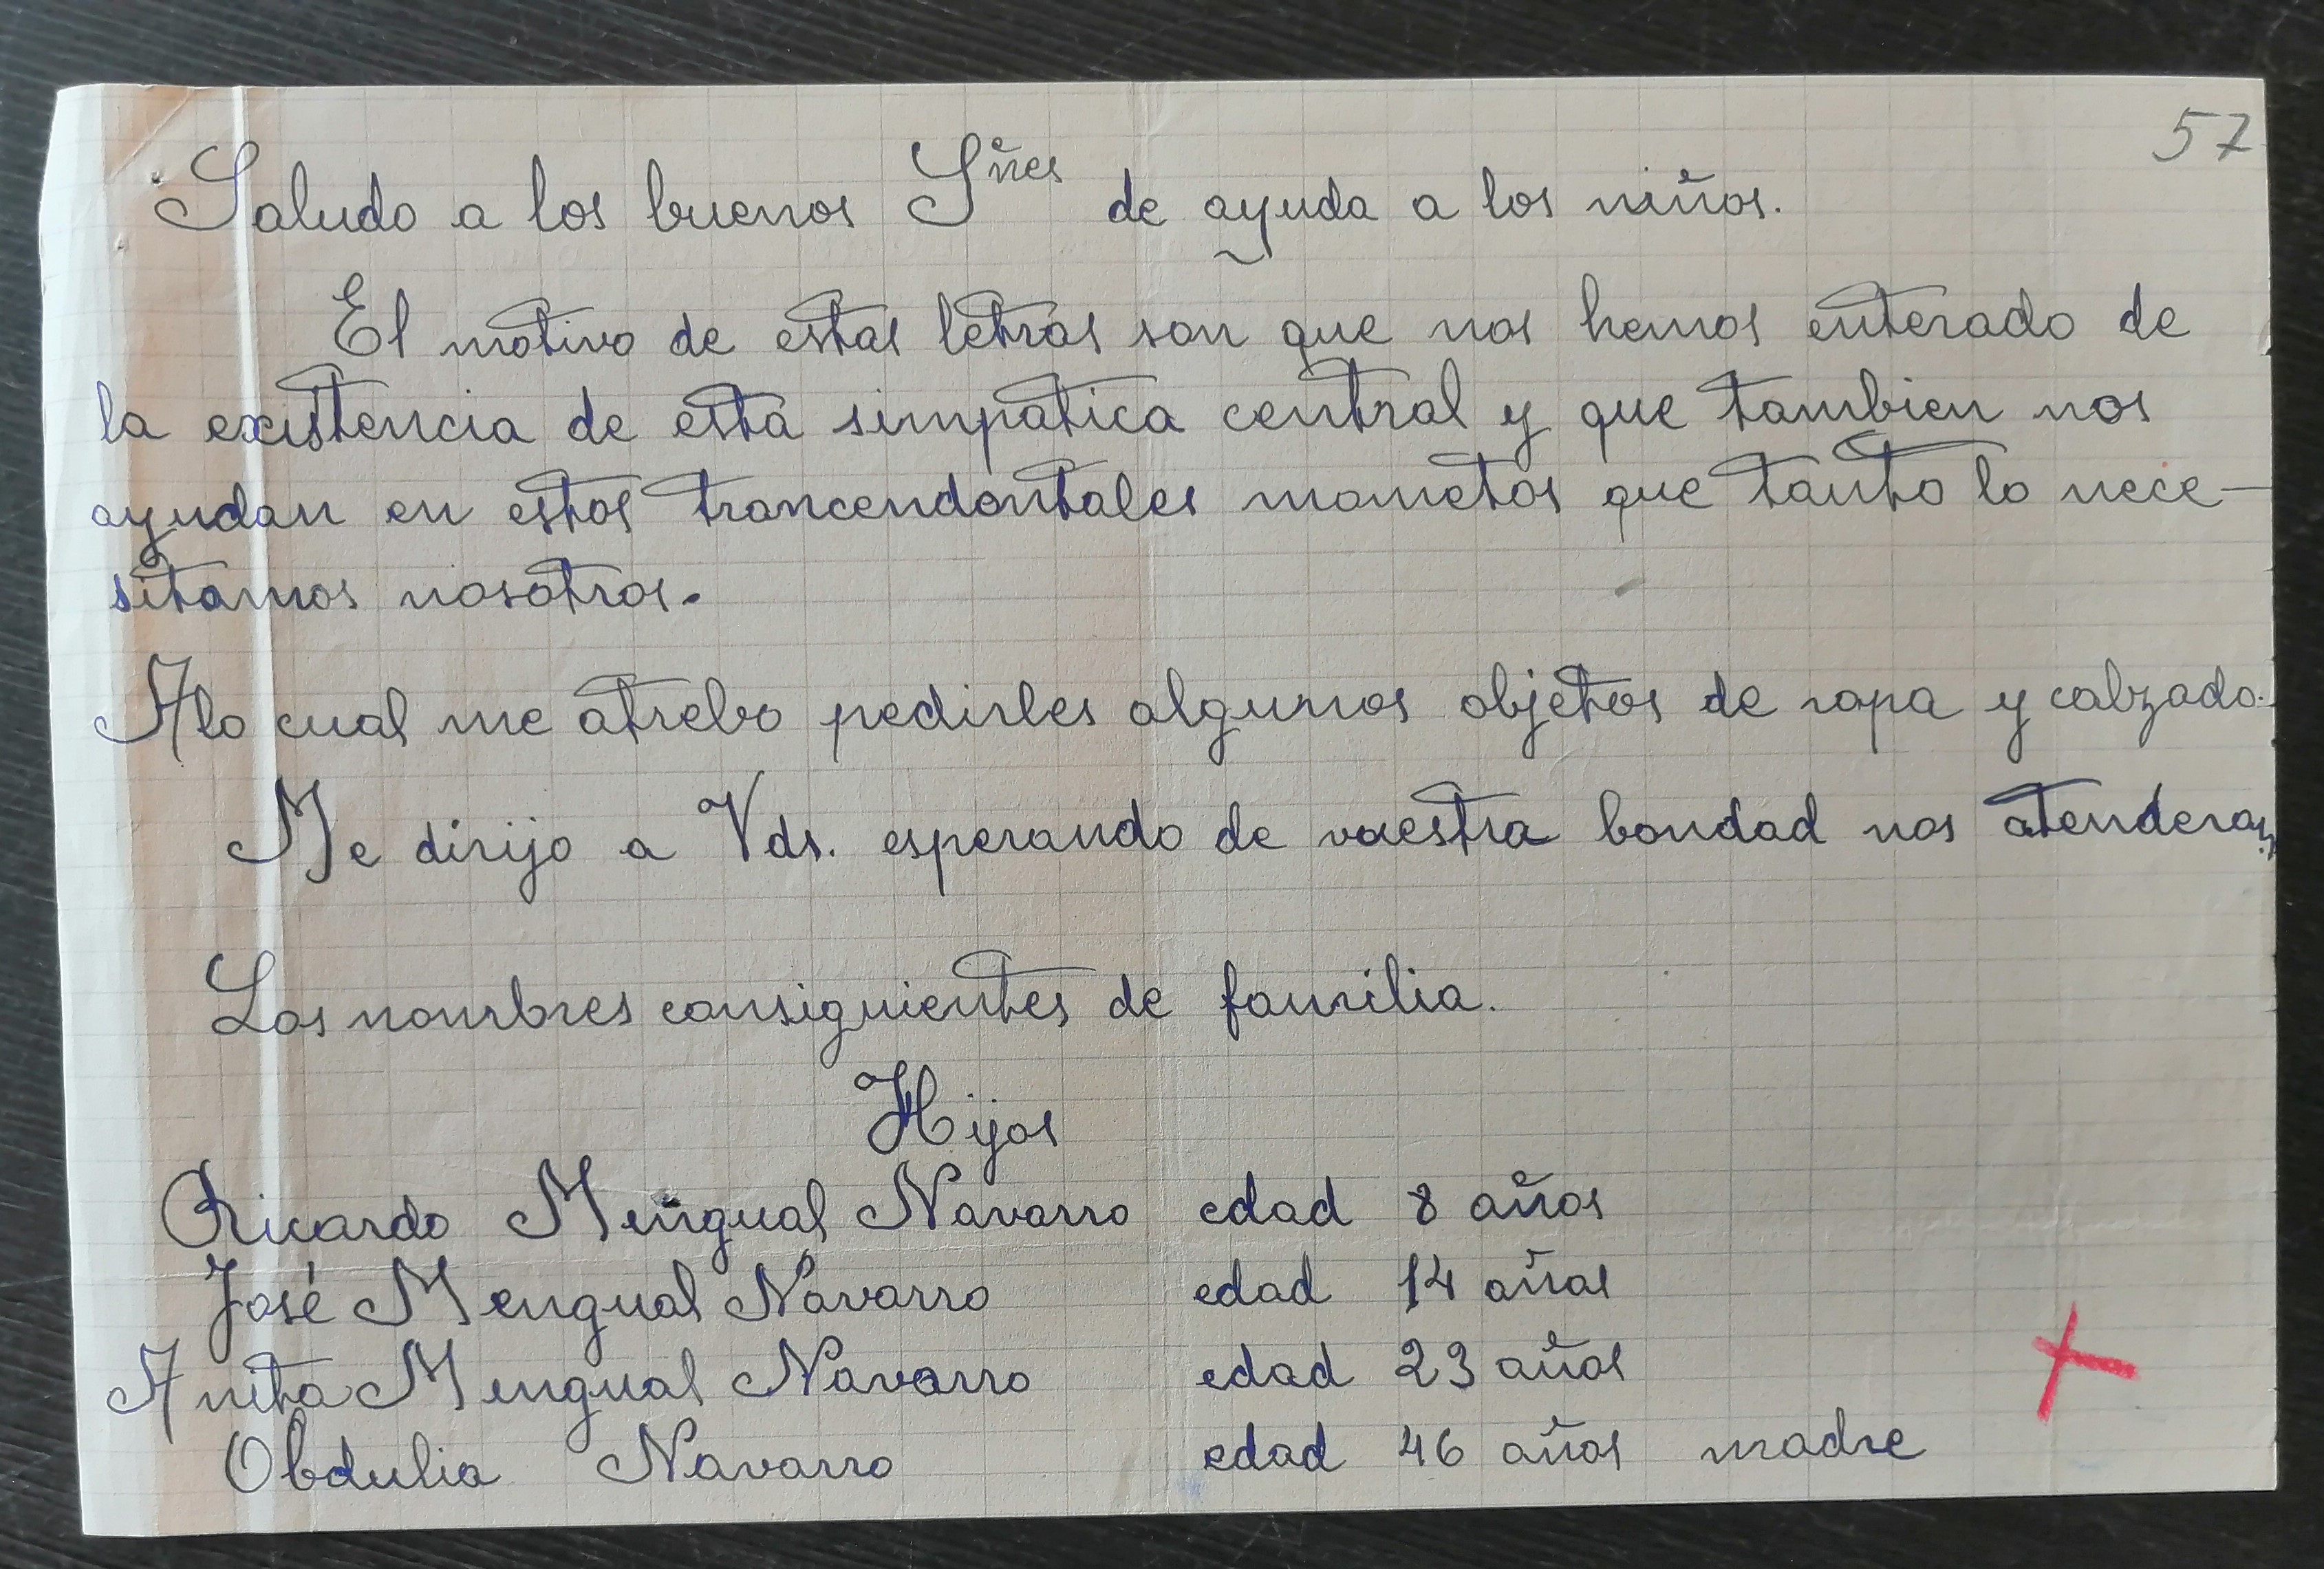 57
Saludo a los buenos Sñres de ayuda a los niños.
El motivo de estas letras son que nos hemos enterado de
la existencia de esta simpatica central y que tambien nos
ayudan en estos trancendentales mometos que tanto lo nece-
sitamos nosotros.
Alo cual me atrebo pedirles algunos objetos de ropa y calzado.
Me dirijo a Vds. esperando de vuestra bondad nos atenderan
Los nombres consiguientes de familia.
Hijos
Ricardo Mengual Navarro edad 8 años
José Mengual Navarro edad 14 años
Anita Mengual Navarro edad 23 años
Obdulia Navarro edad 46 años madre